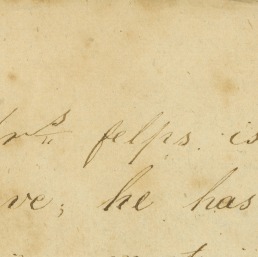 Mrs felps is
ive, he has